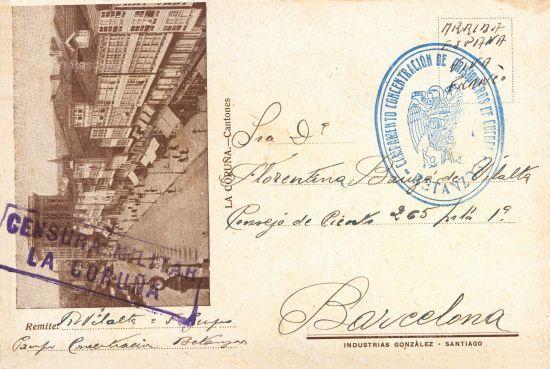 ARRIBA
ESPAÑA
VIVA
FRANCO
CAMPAMENTO CONCENTRACIÓN DE PRISIONEROS DE GUERRA
BETANZOS
LA CORUÑA.—Cantones
Sra Dª
Florentina de Vilalta
Consejo de Ciento 265 1º
Barcelona
CENSURA MILITAR
LA CORUÑA
Remite: Vilalta
Concentración Betanzos
INDUSTRIAS GONZÁLEZ - SANTIAGO